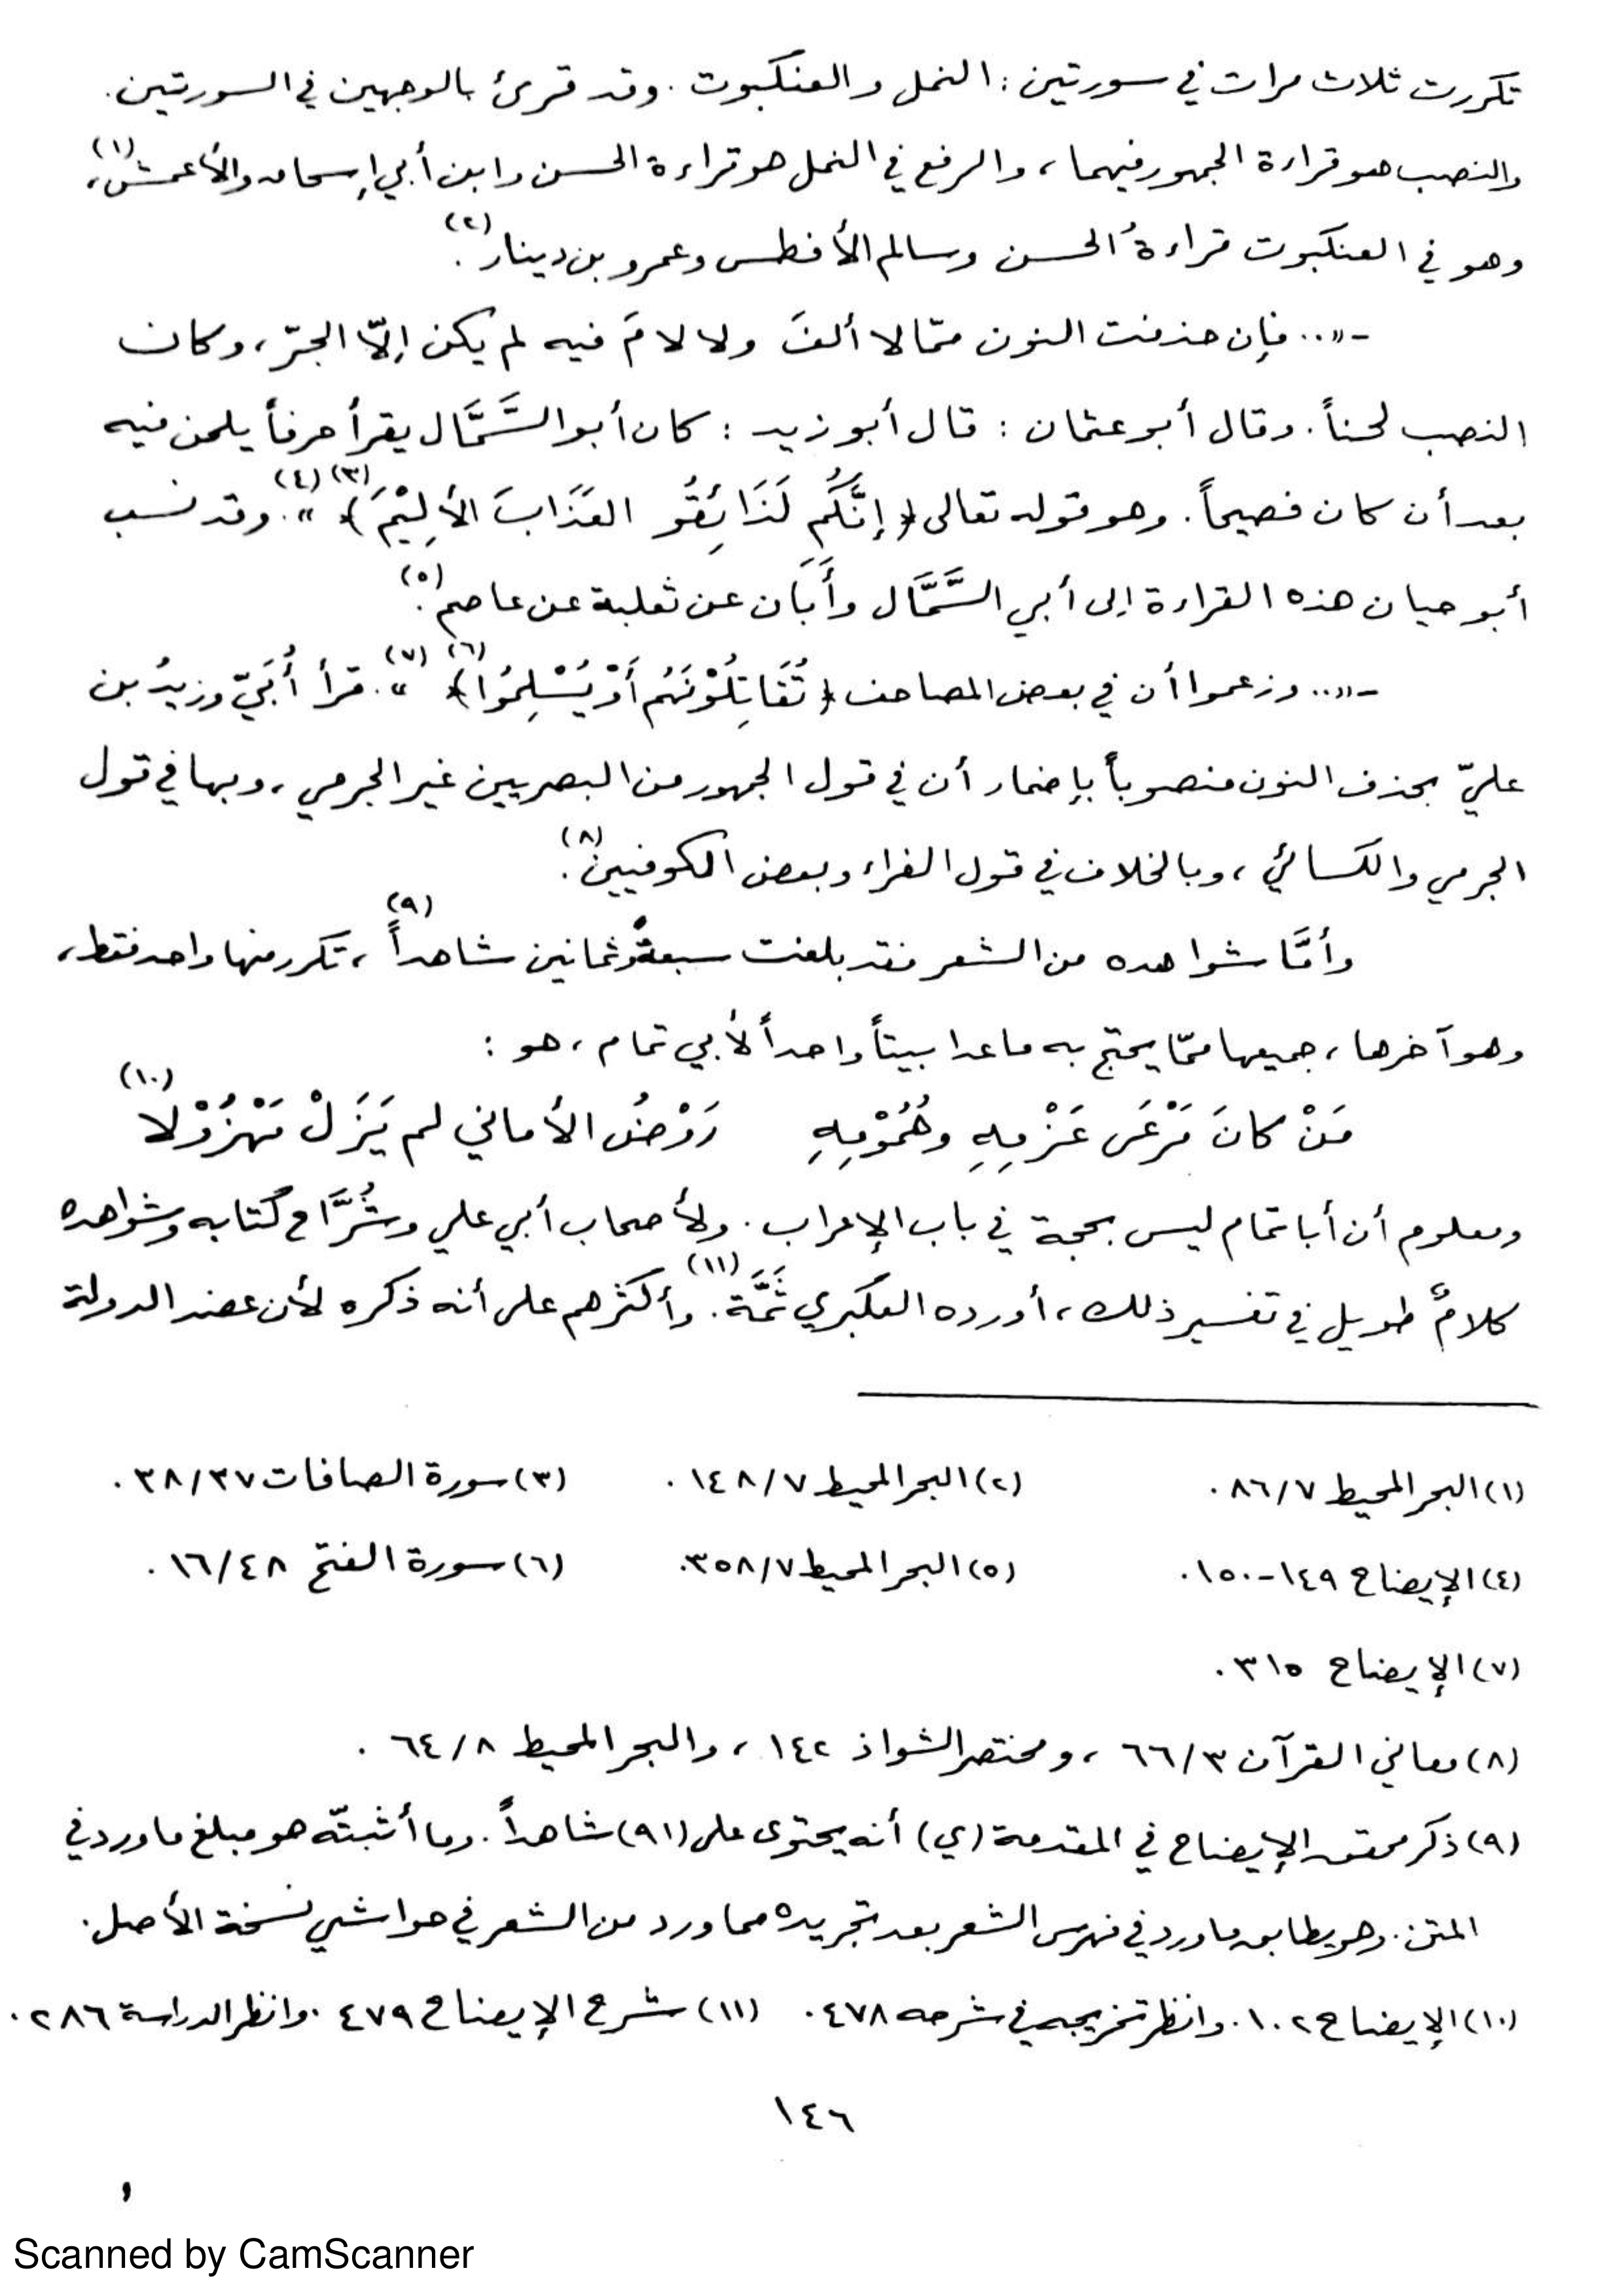 تكررت ثلاث مرات في سورتين : النمل والعنكبوت . وقد قرئ بالوجهين في السورتين .
والنصب هو قراءة الجمهور فيهما ، والرفع في النمل هو قراءة الحسن وابن أبي إسحاق والأعمش(١)،
وهو في العنكبوت قراءةُ الحسن وسالم الأفطس وعمرو بن دينار(٢).
- «... فإن حذفت النون ممّا لا ألفَ ولا لامَ فيه لم يكن إلّا الجرّ ، وكان
النصب لحناً . وقال أبو عثمان : قال أبو زيد : كان أبو السَّمَّال يقرأ حرفاً يلحن فيه
بعد أن كان فصيحاً . وهو قوله تعالى ﴿ إِنَّكُم لَذَائِقُو العَذَابَ الأَلِيْمَ ﴾(٣) »(٤). وقد نسب
أبو حيان هذه القراءة إلى أبي السَّمَّال وأَبَان عن ثعلبة عن عاصم(٥).
- «... وزعموا أن في بعض المصاحف ﴿ تُقَاتِلُوْنَهُم أَوْ يُسْلِمُوا ﴾(٦) »(٧). قرأ أُبَيّ وزيدُ بن
عليّ بحذف النون منصوباً بإضمار أن في قول الجمهور من البصريين غير الجرمي ، وبها في قول
الجرمي والكسائي ، وبالخلاف في قول الفراء وبعض الكوفيين(٨).
وأمَّا شواهده من الشعر فقد بلغت سبعةً وثمانين شاهداً(٩) ، تكرر منها واحد فقط ،
وهو آخرها ، جميعها ممّا يحتج به ما عدا بيتاً واحداً لأبي تمام ، هو :
مَنْ كانَ مَرْعَى عَزْمِهِ وهُمُوْمِهِ رَوْضُ الأماني لم يَزَلْ مَهْزُوْلا(١٠)
ومعلوم أن أبا تمام ليس بحجة في باب الإعراب . ولأصحاب أبي علي وشُرَّاح كتابه وشواهده
كلامٌ طويل في تفسير ذلك ، أورده العكبري ثَمَّةَ(١١). وأكثرهم على أنه ذكره لأن عضد الدولة
(١) البحر المحيط ٨٦/٧ . (٢) البحر المحيط ١٤٨/٧ . (٣) سورة الصافات ٣٨/٣٧ .
(٤) الإيضاح ١٤٩-١٥٠ . (٥) البحر المحيط ٣٥٨/٧. (٦) سورة الفتح ١٦/٤٨ .
(٧) الإيضاح ٣١٥ .
(٨) معاني القرآن ٦٦/٣ ، ومختصر الشواذ ١٤٢ ، والبحر المحيط ٦٤/٨ .
(٩) ذكر محقق الإيضاح في المقدمة (ي) أنه يحتوى على (٩١) شاهداً . وما أثبتّه هو مبلغ ما ورد في
المتن . وهو يطابق ما ورد في فهرس الشعر بعد تجريده مما ورد من الشعر في حواشي نسخة الأصل .
(١٠) الإيضاح ١٠٢ . وانظر تخريجه في شرحه ٤٧٨ . (١١) شرح الإيضاح ٤٧٩ . وانظر الدراسة ٢٨٦ .
١٤٦
Scanned by CamScanner